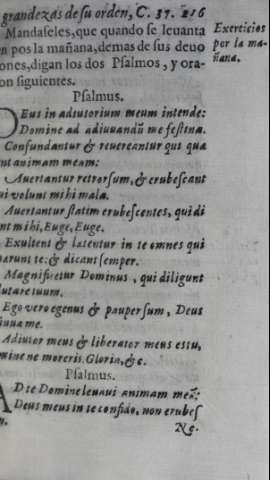 grandezas de su orden, C. 37. 216
Mandaseles, que quando se leuanta
Exercicios
n pos la mañana, demas de sus deuo
por la ma-
ones, digan los dos Psalmos, y ora-
ñana.
on siguientes.
Psalmus.
Deus in adiutorium meum intende:
Domine ad adiuuandũ me festina.
Confundantur & reuereantur qui qua
nt animam meam:
Auertantur retrorsum, & erubescant
ui volunt mihi mala.
Auertantur statim erubescentes, qui di
nt mihi, Euge, Euge.
Exultent & lætentur in te omnes qui
uærunt te: & dicant semper.
Magnificetur Dominus, qui diligunt
lutare tuum.
Ego vero egenus & pauper sum, Deus
iuua me.
Adiutor meus & liberator meus es tu,
mine ne moreris. Gloria, &c.
Psalmus.
AD te Domine leuaui animam meã:
Deus meus in te confido, non erubes
n.
Ne.